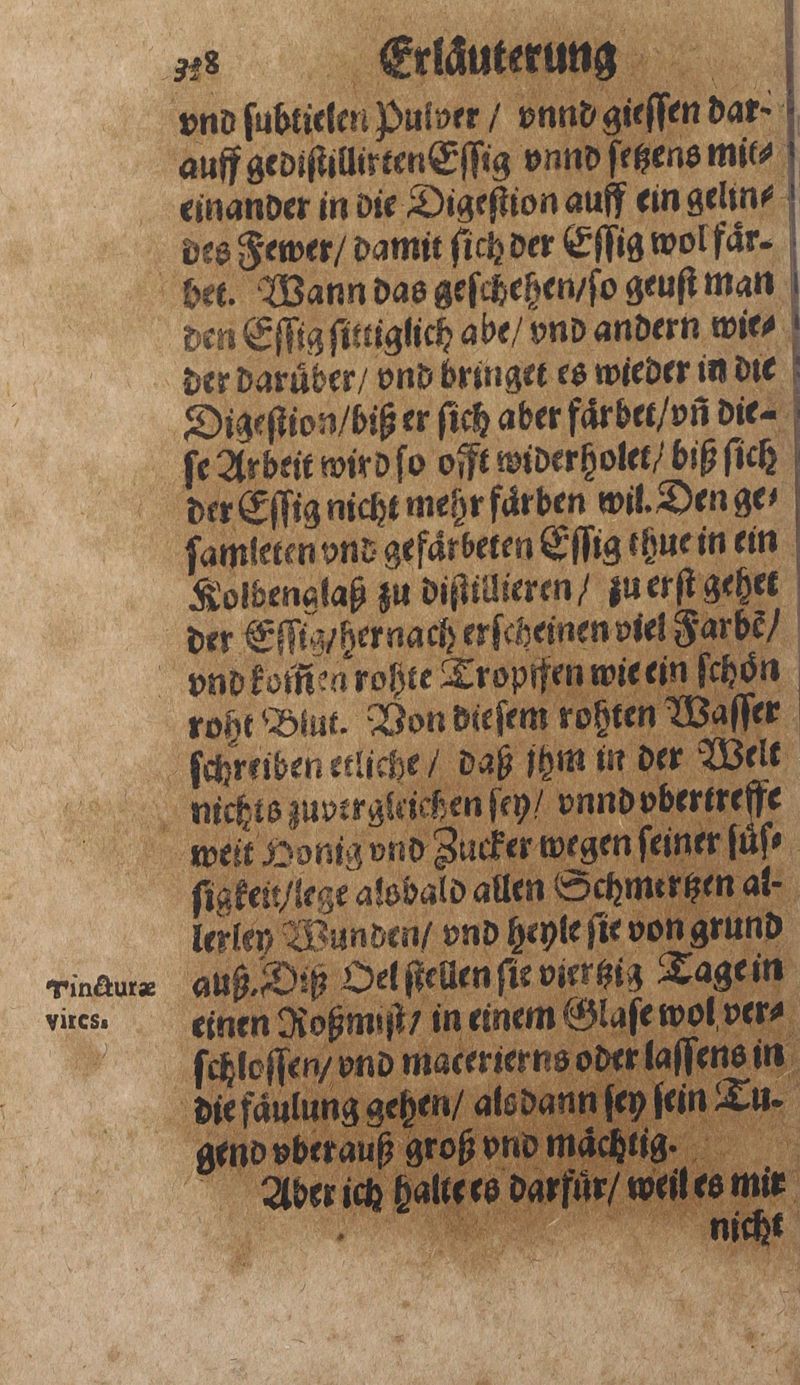 Erläuterung
vnd ſubtielen Pulver / vnnd gieſſen dar-
auff gediſtillirten Eſſig vnnd ſetzens mit⸗
einander in die Digeſtion auff ein gelin⸗
des Fewer/ damit ſich der Eſſig wol fär-
bet. Wann das geſchehen/ſo geuſt man
den Eſſig ſittiglich abe/ vnd andern wie⸗
der darüber/ vnd bringet es wieder in die
Digeſtion/biß er ſich aber färbet/vñ die-
ſe Arbeit wird ſo offt widerholet/ biß ſich
der Eſſig nicht mehr färben wil. Den ge⸗
ſamleten vnd gefärbeten Eſſig thue in ein
Kolbenglaß zu diſtillieren / zu erſt gehet
der Eſſig/hernach erſcheinen viel Farbē/
vnd kom̃en rohte Tropffen wie ein ſchön
roht Blut. Von dieſem rohten Waſſer
ſchreiben etliche / daß jhm in der Welt
nichts zuvergleichen ſey/ vnnd vbertreffe
weit Honig vnd Zucker wegen ſeiner ſüſ⸗
ſigkeit/lege alsbald allen Schmertzen al-
lerley Wunden/ vnd heyle ſie von grund
auß. Diß Oel ſtellen ſie viertzig Tage in
einen Roßmiſt/ in einem Glaſe wol ver⸗
ſchloſſen/ vnd macerierns oder laſſens in
die fäulung gehen/ alsdann ſey ſein Tu-
gend vberauß groß vnd mächtig.
Aber ich halte es darfür/ weil es mir
nicht
Tincturæ
vires.